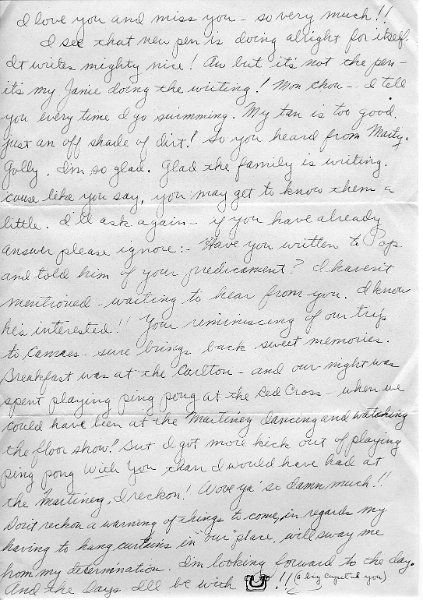 I love you and miss you - so very much!!
I see that new pen is doing alright for itself.
It writes mighty nice! Aw but it's not the pen -
it's my Janie doing the writing! Mon chou - I tell
you every time I go swimming. My tan is too good.
just an off shade of dirt! So you heard from Marty.
Golly. I'm so glad. Glad the family is writing.
cause like you say, you may get to know them a
little. I'll ask again - if you have already
answer please ignore:- Have you written to Pop.
and told him of your predicament? I haven't
mentioned - waiting to hear from you. I know
he's interested!! Your reminiscing of our trip
to Cannes - sure brings back sweet memories.
Breakfast was at the Carlton - and our night was
spent playing ping pong at the Red Cross - when we
could have been at the Martinez dancing and watching
the floor show! But I got more kick out of playing
ping pong with you than I would have had at
the Martinez, I reckon! I love ya' so damn much!!
Don't reckon a warning of things to come, in regards my
having to hang curtains in our place, will sway me
from my determination. I'm looking forward to the day.
And the days I'll be with U!! (a big of you)